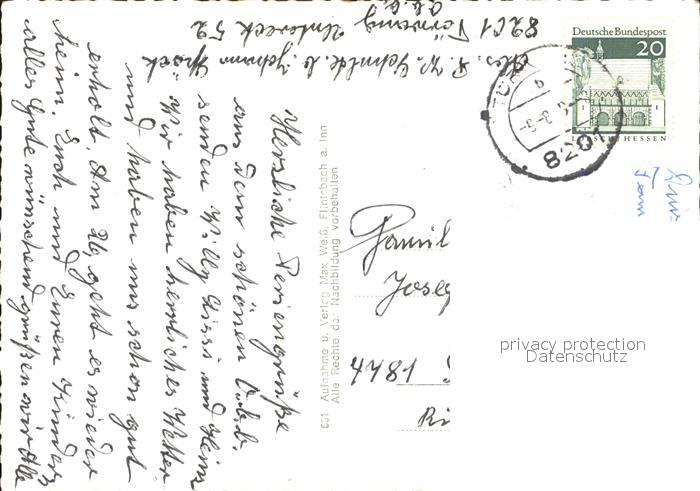 8201 Törwang
Untereck 52
Abs. P. W. Schmidt b. Johann Stock
Herzliche Feriengrüße
aus dem schönen Obb.
senden Willy Sissi und Heinz
Wir haben herrliches Wetter
und haben uns schon gut
erholt. Am 26. geht es wieder
heim. Euch und Euren Kindern
alles Gute wünschend grüßen wir Alle
601 Aufnahme u. Verlag Max Weiß, Flintsbach a. Inn
Alle Rechte der Nachbildung vorbehalten
Deutsche Bundespost
20
HESSEN
8201
Famil
Joseg
4781
Ri
privacy protection
Datenschutz